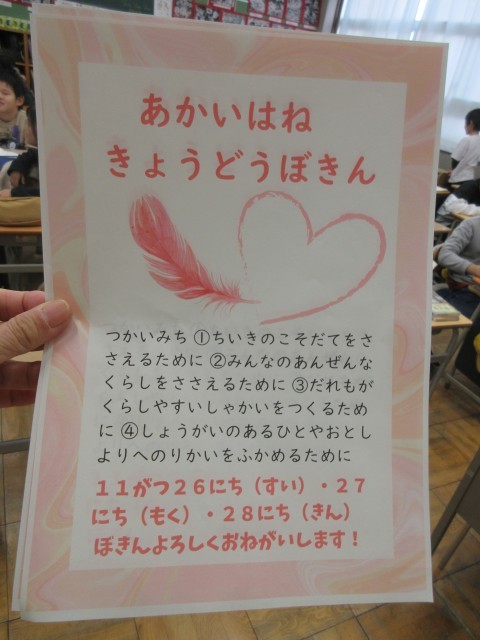 あかいはね
きょうどうぼきん
つかいみち ①ちいきのこそだてをさ
さえるために ②みんなのあんぜんな
くらしをささえるために ③だれもが
くらしやすいしゃかいをつくるため
に ④しょうがいのあるひとやおとし
よりへのりかいをふかめるために
１１がつ２６にち（すい）・２７
にち（もく）・２８にち（きん）
ぼきんよろしくおねがいします！